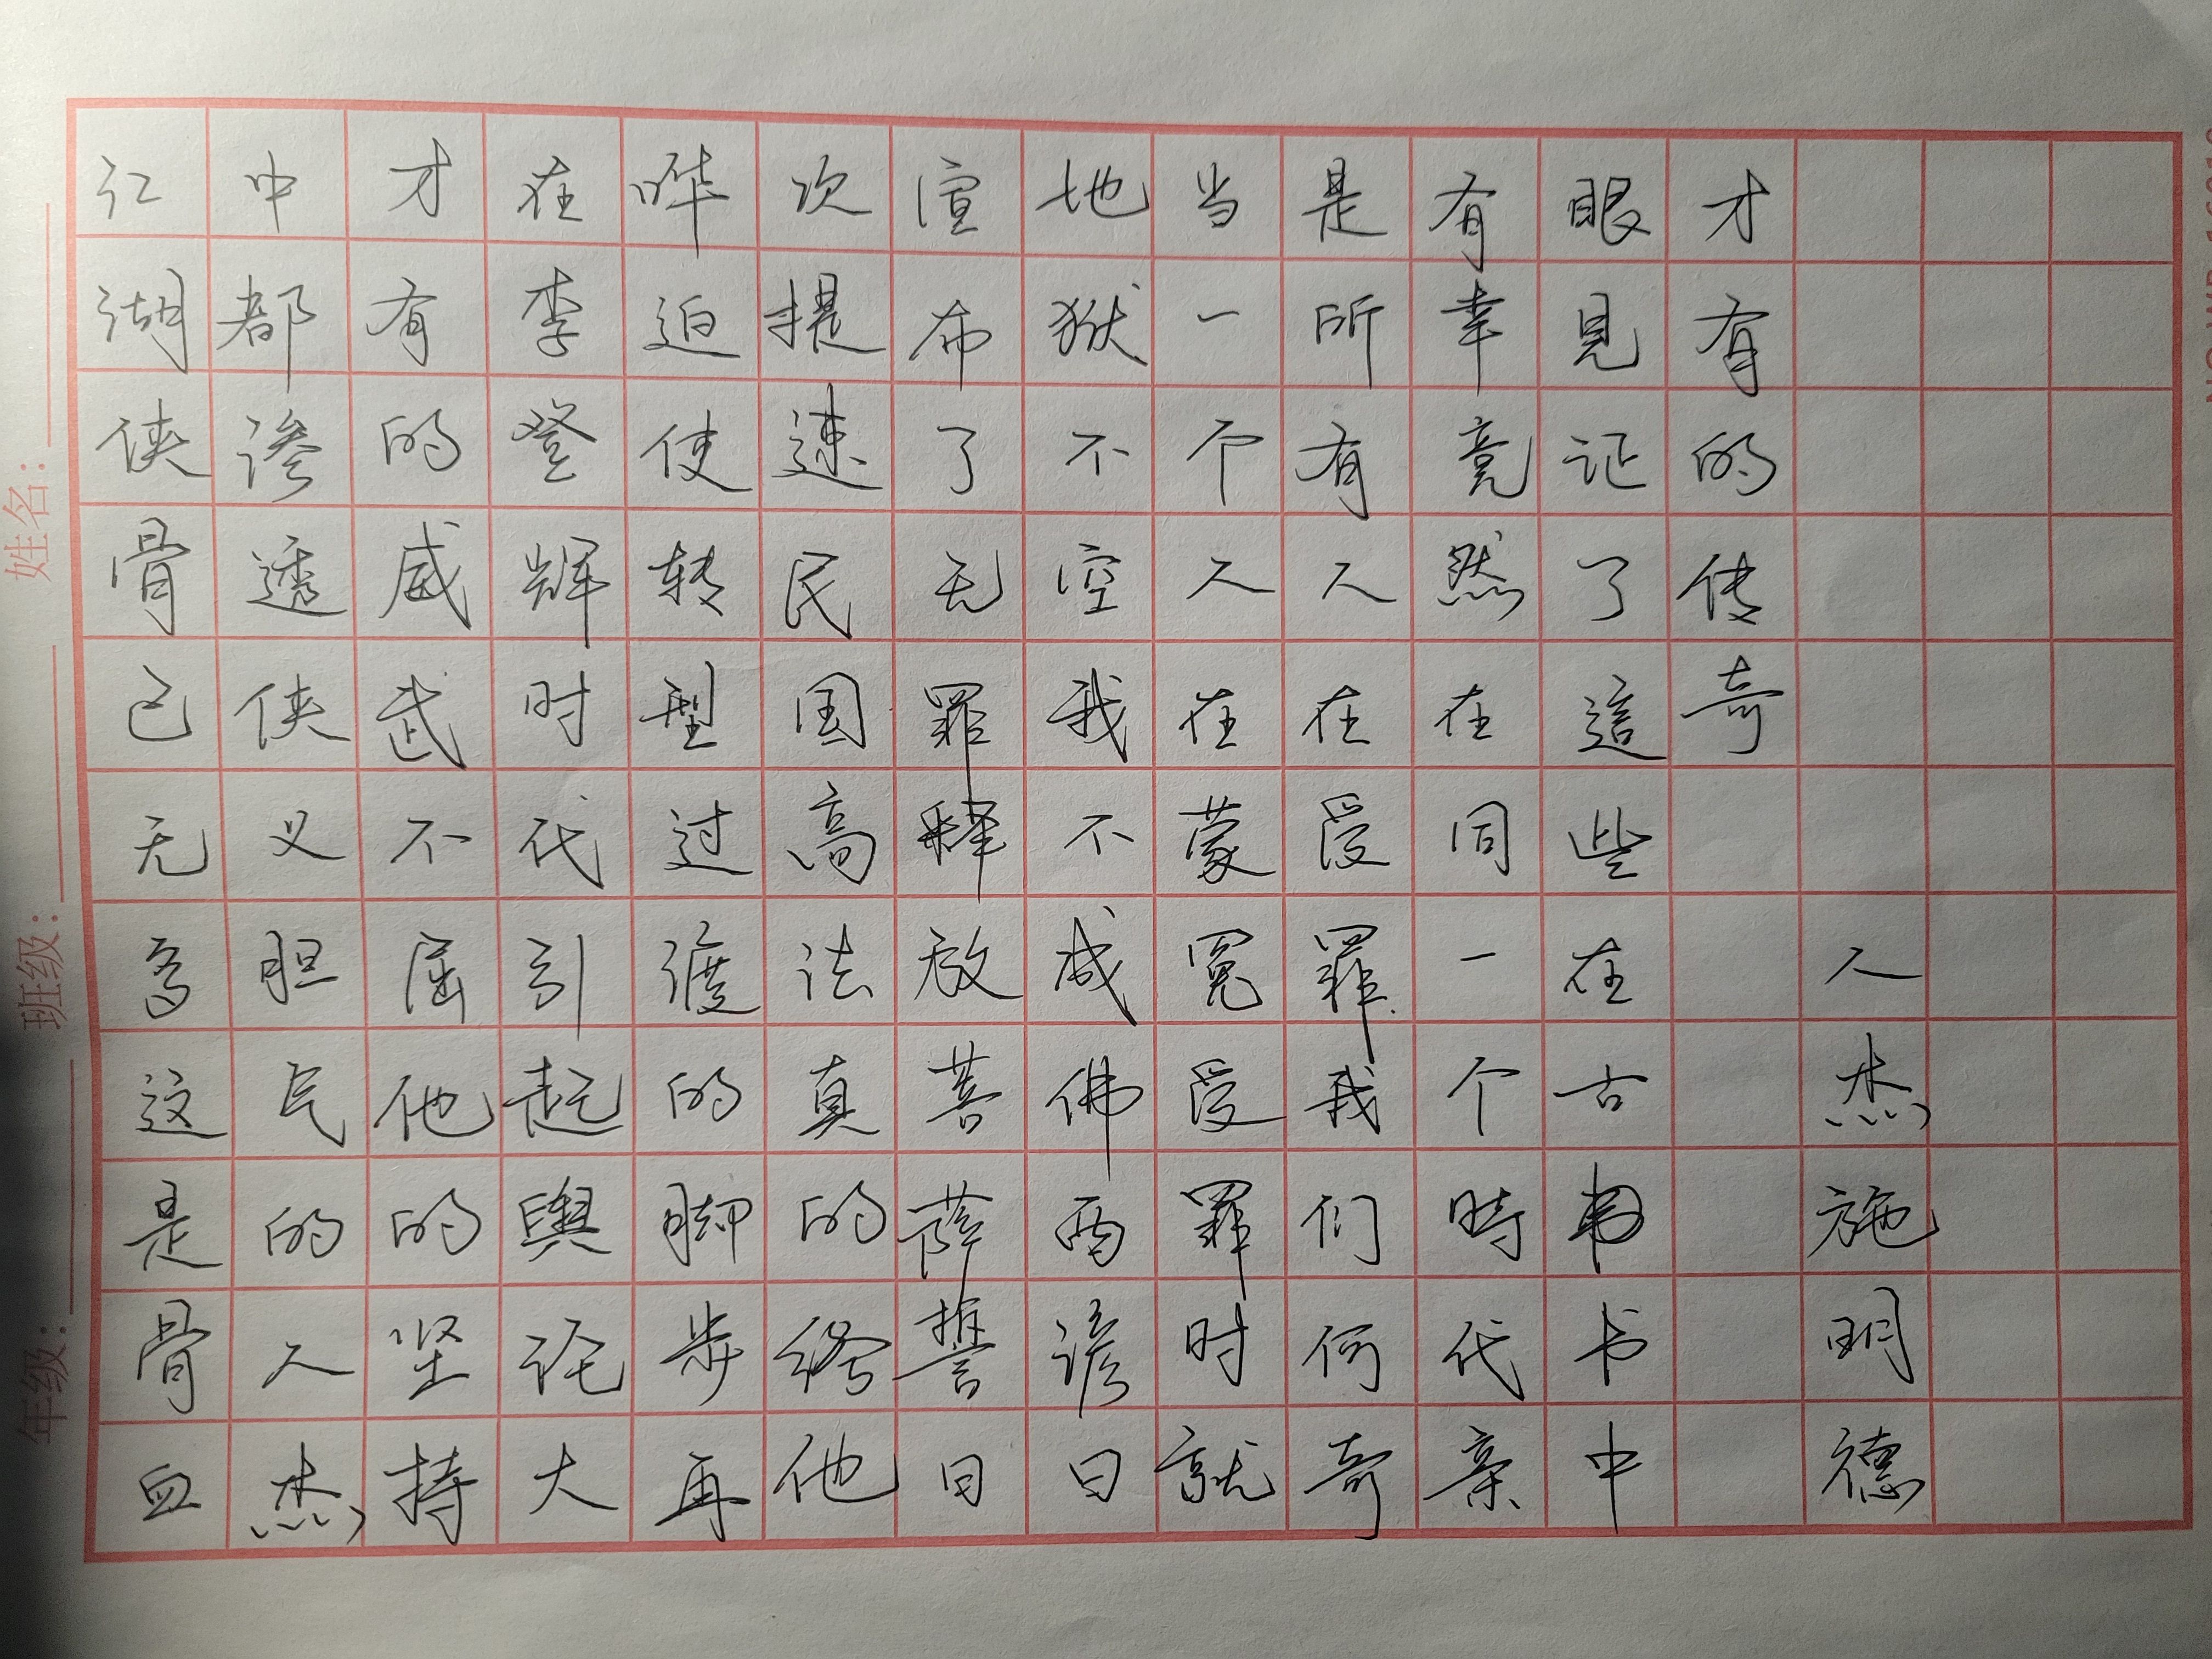 江湖侠骨已无多这是骨血
中都渗透侠义胆气的人杰
才有的威武不屈他的坚持
在李登辉时代引起舆论大
哗迫使转型过渡的脚步再
次提速民国高法真的给他
宣布了无罪释放菩萨誓曰
地狱不空我不成佛西谚曰
当一个人在蒙冤受罪时就
是所有人在受罪我们何奇
有幸竟然在同一个時代亲
眼见证了這些在古书中
才有的传奇
人杰施明德
年级：
班级：
姓名：